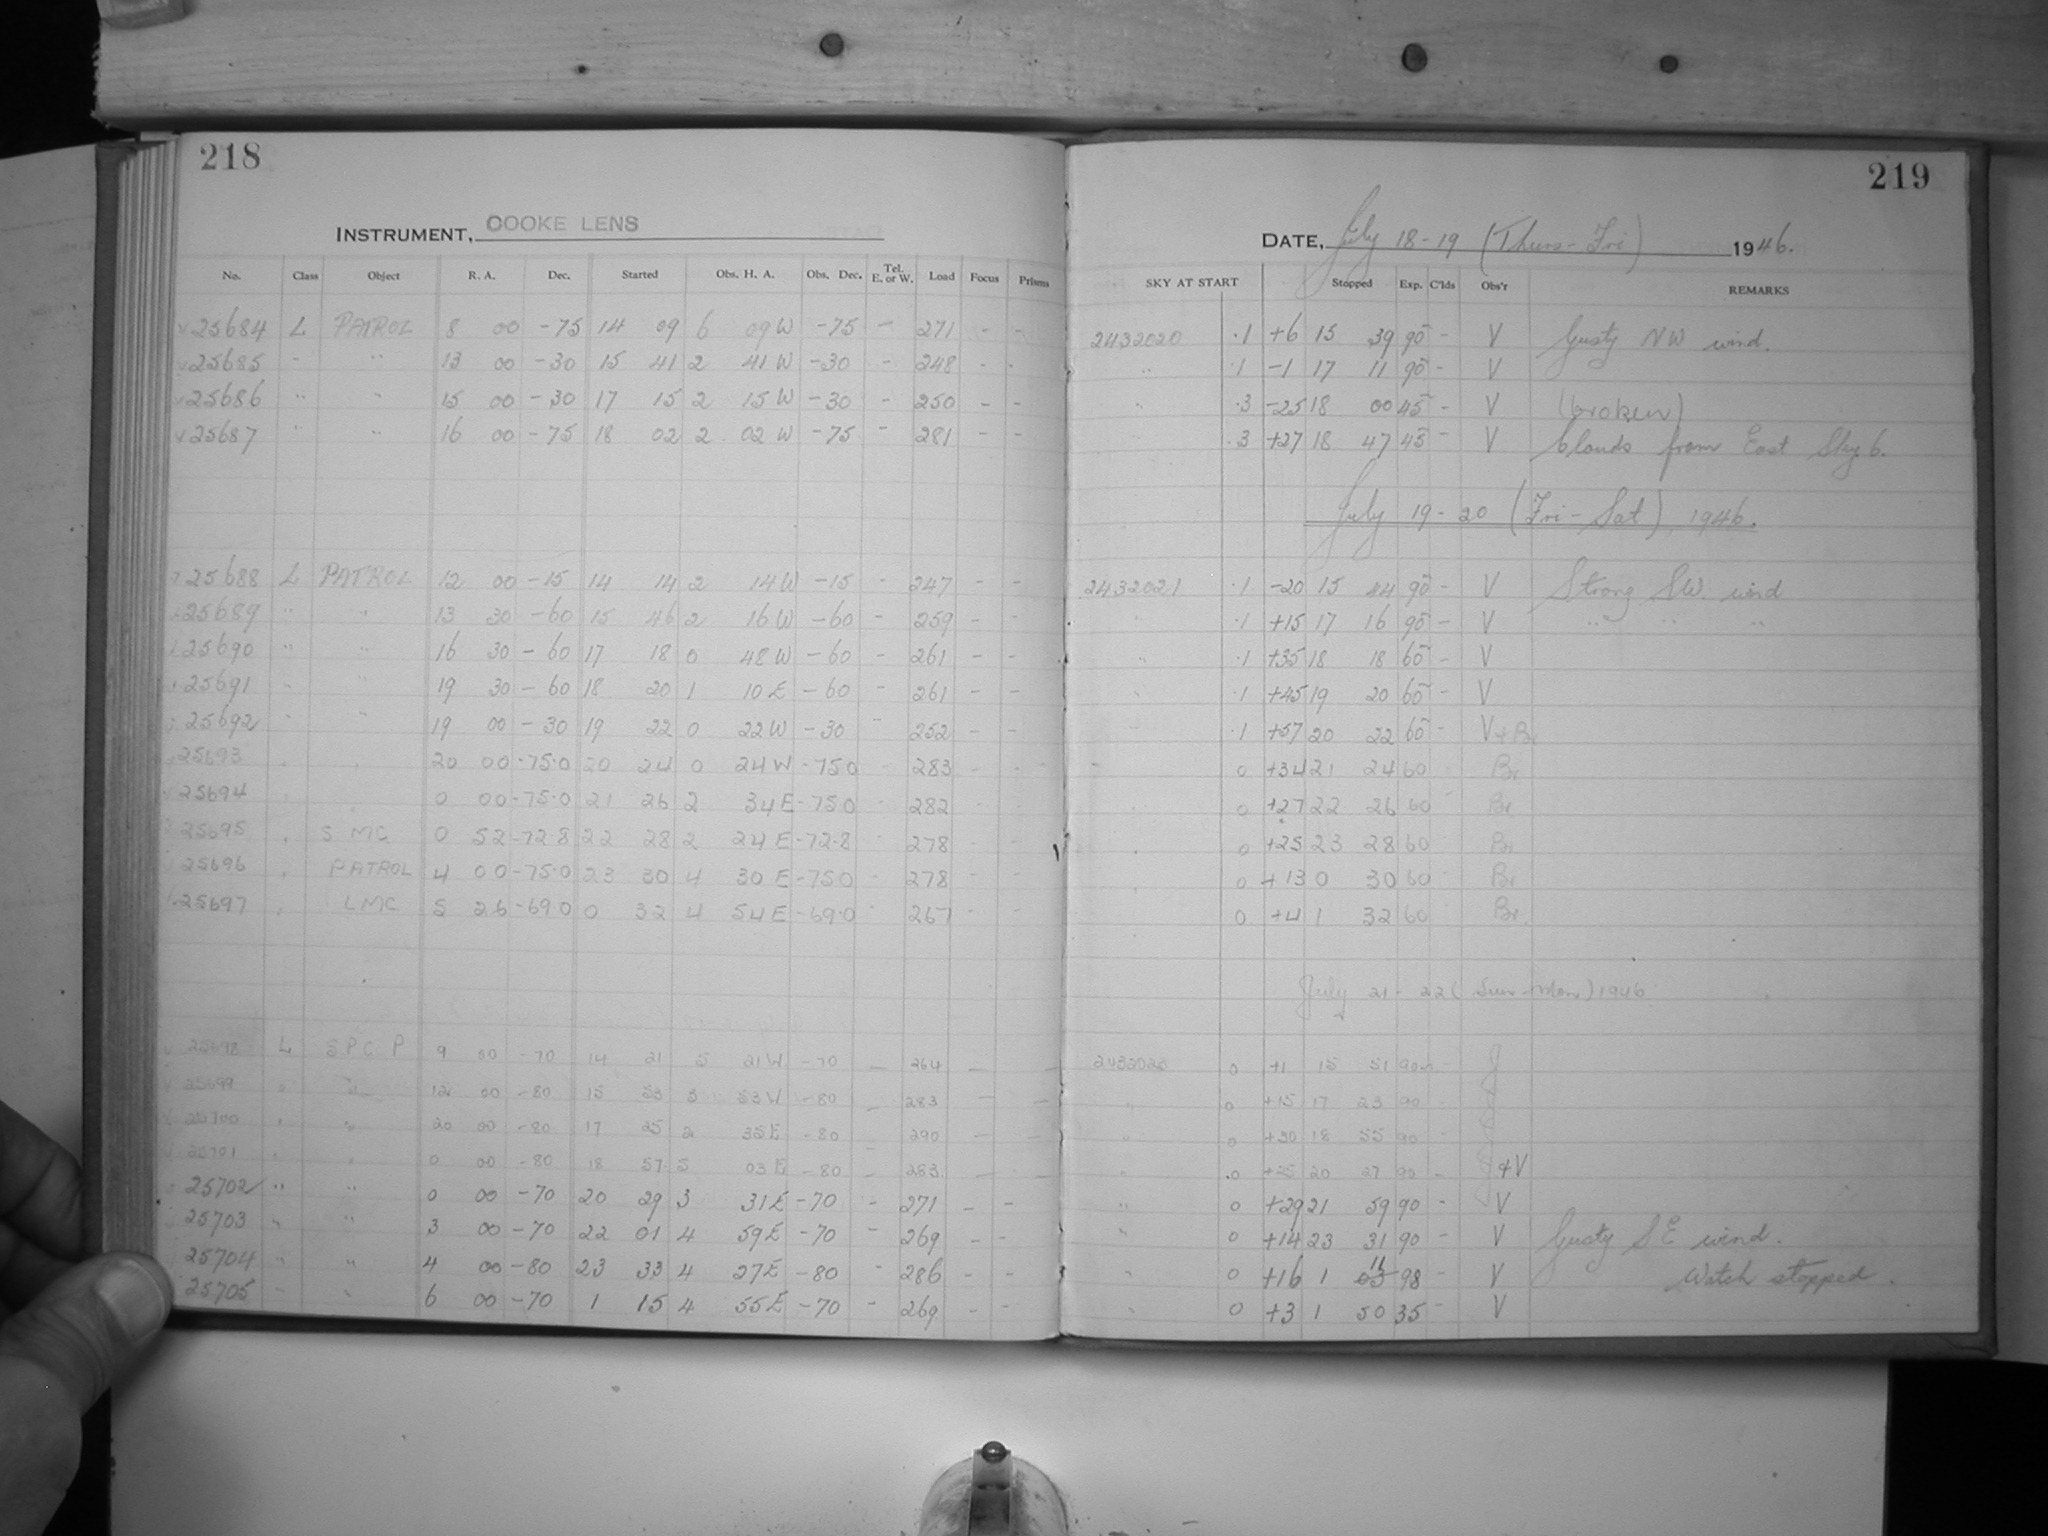 218
INSTRUMENT, COOKE LENS
No. Class Object R. A. Dec. Started Obs. H. A. Obs. Dec. Tel. E. or W. Load Focus Prisms
25684 L PATROL 8 00 -75 14 09 6 09 W -75 - 271 - -
25685 " " 13 00 -30 15 41 2 41 W -30 - 248 - -
25686 " " 15 00 -30 17 15 2 15 W -30 - 250 - -
25687 " " 16 00 -75 18 02 2 02 W -75 - 281 - -
25688 L PATROL 12 00 -15 14 14 2 14 W -15 - 247 - -
25689 " " 13 30 -60 15 46 2 16 W -60 - 259 - -
25690 " " 16 30 -60 17 18 0 48 W -60 - 261 - -
25691 " " 19 30 -60 18 20 1 10 E -60 - 261 - -
25692 " " 19 00 -30 19 22 0 22 W -30 - 252 - -
25693 " " 20 00 -75.0 20 24 0 24 W -75.0 283 - -
25694 " " 0 00 -75.0 21 26 2 34 E -75.0 - 282 - -
25695 " SMC 0 52 -72.8 22 28 2 24 E -72.8 278 - -
25696 " PATROL 4 00 -75.0 23 30 4 30 E -75.0 - 278 - -
25697 " LMC 5 26 -69.0 0 32 4 54 E -69.0 - 267 - -
25698 L S.P.C P 9 00 -70 14 21 5 21 W -70 - 264 - -
25699 " " 12 00 -80 15 53 3 53 W -80 - 283 - -
25700 " " 20 00 -80 17 25 2 35 E -80 - 290 - -
25701 " " 0 00 -80 18 57 5 03 E -80 - 283 - -
25702 " " 0 00 -70 20 29 3 31 E -70 - 271 - -
25703 " " 3 00 -70 22 01 4 59 E -70 - 269 - -
25704 " " 4 00 -80 23 33 4 27 E -80 - 286 - -
25705 " " 6 00 -70 1 15 4 55 E -70 - 269 - -
219
DATE, July 18-19 (Thurs-Fri) 1946.
SKY AT START Stopped Exp. C'lds Obs'r REMARKS
2432020 .1 +6 15 39 90 - V Gusty NW wind.
" .1 -1 17 11 90 - V
" .3 -25 18 00 45 - V (broken)
" .3 +27 18 47 45 - V Clouds from East Sky.6.
July 19-20 (Fri-Sat), 1946.
2432021 .1 -20 15 44 90 - V Strong SW. wind
" .1 +15 17 16 90 - V " " "
" .1 +35 18 18 60 - V
" .1 +45 19 20 60 - V
" .1 +57 20 22 60 - V + Br
" 0 +34 21 24 60 Br
" 0 +27 22 26 60 Br
" 0 +25 23 28 60 Br
" 0 +13 0 30 60 Br
0 +4 1 32 60 Br.
July 21-22 (Sun-Mon) 1946
2432023 0 +1 15 51 90 - J
" 0 +15 17 23 90 - J
" 0 +30 18 55 90 J
" .0 20 27 90 - J + V
" 0 +29 21 59 90 - V
" 0 +14 23 31 90 - V Gusty SE wind.
" 0 +16 1 11 98 - V Watch stopped.
" 0 +3 1 50 35 - V